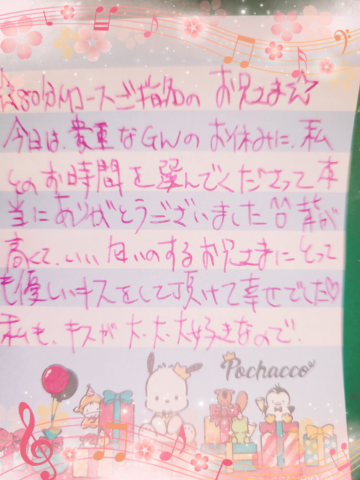 ☆80分コースご指名のお兄さま☆
今日は、貴重なGWのお休みに、私
とのお時間を選んでくださって本
当にありがとうございました!!背が
高くて、いい匂いのするお兄さまにとって
も優しいキスをして頂けて幸せでした♡
私も、キスが大、大、大好きなので、
Pochacco